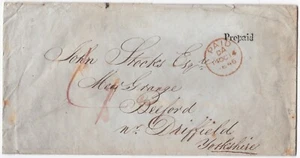 Prepaid
PAID
John Stocks Esqr
May Grange
Beeford
nr Driffield
Yorkshire